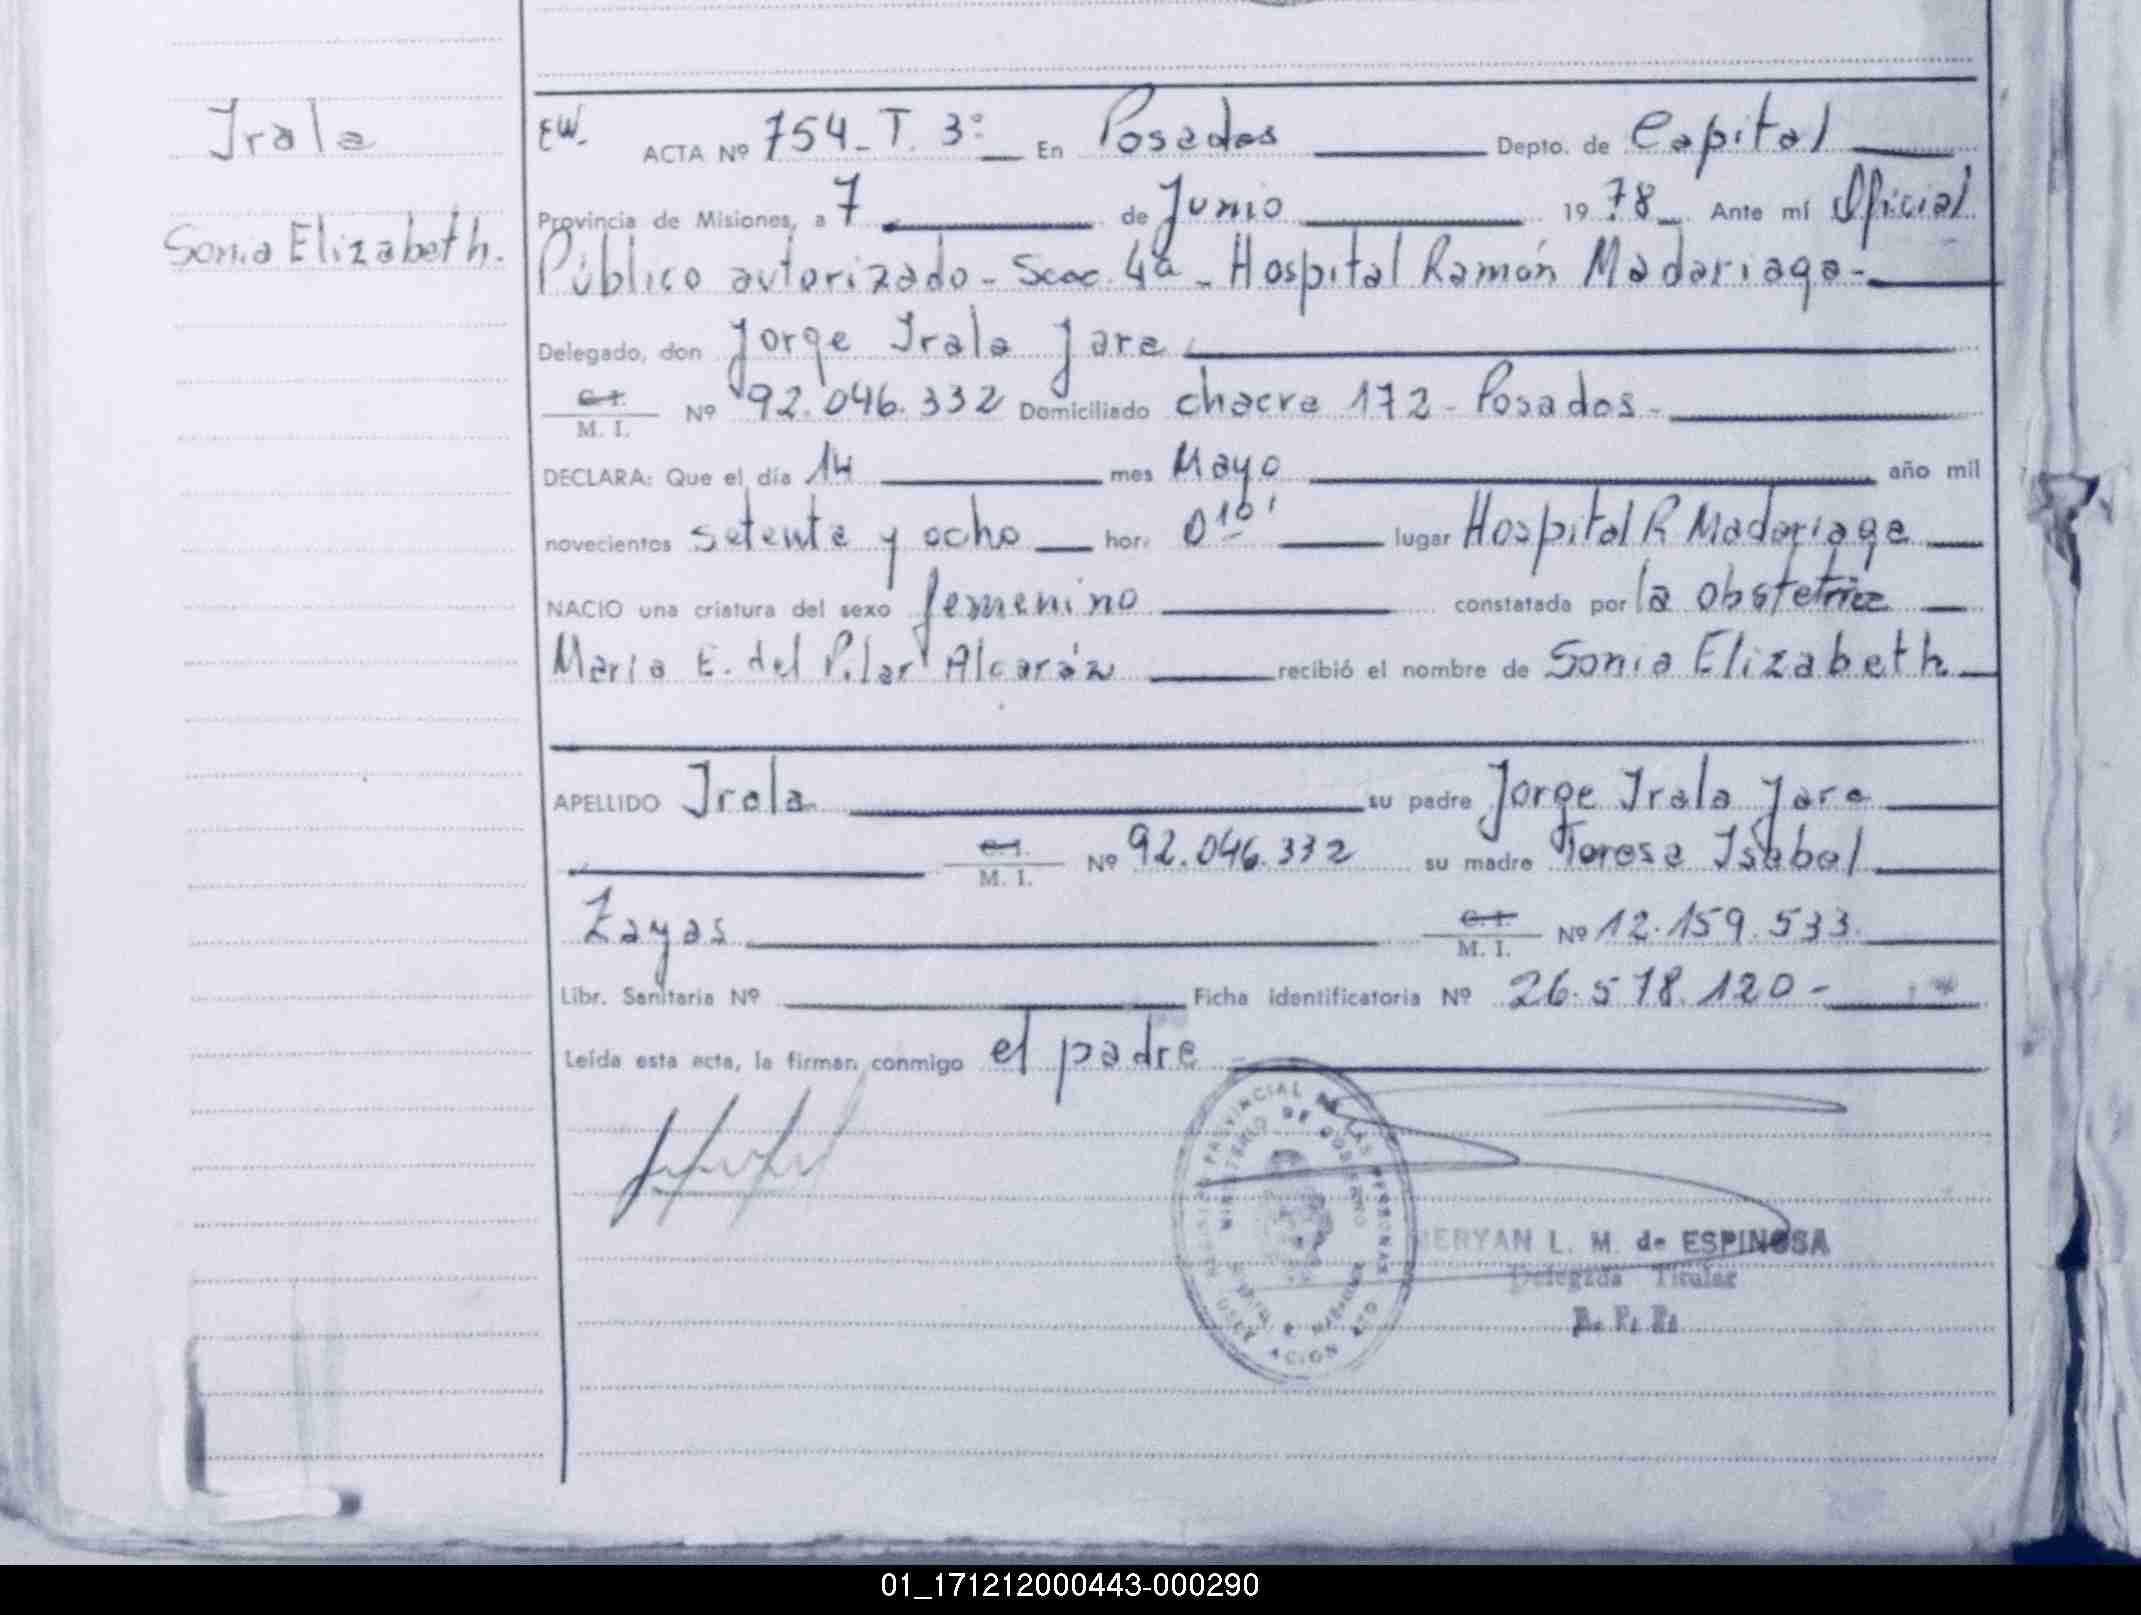 Irala
Sonia Elizabeth.
EW. ACTA Nº 754_T. 3º En Posadas Depto. de Capital
Provincia de Misiones, a 7 de Junio 1978 Ante mí Oficial
Público autorizado - Secc. 4a - Hospital Ramón Madariaga -
Delegado, don Jorge Irala Jara
C. I.
M. I. Nº 92.046.332 Domiciliado chacra 172 - Posadas -
DECLARA: Que el día 14 mes Mayo año mil
novecientos setenta y ocho hora 0 10' lugar Hospital R Madariaga
NACIO una criatura del sexo femenino constatada por la obstetriz
Maria E. del Pilar Alcaráz recibió el nombre de Sonia Elizabeth
APELLIDO Irala su padre Jorge Irala Jara
C. I.
M. I. Nº 92.046.332 su madre Teresa Isabel
Zayas C. I.
M. I. Nº 12.159.533
Libr. Sanitaria Nº Ficha identificatoria Nº 26.578.120 -
Leída esta acta, la firman conmigo el padre
PROVINCIAL DE LAS PERSONAS
MINISTERIO DE GOBIERNO
L. M. de ESPINOSA
Delegada Titular
01_171212000443-000290